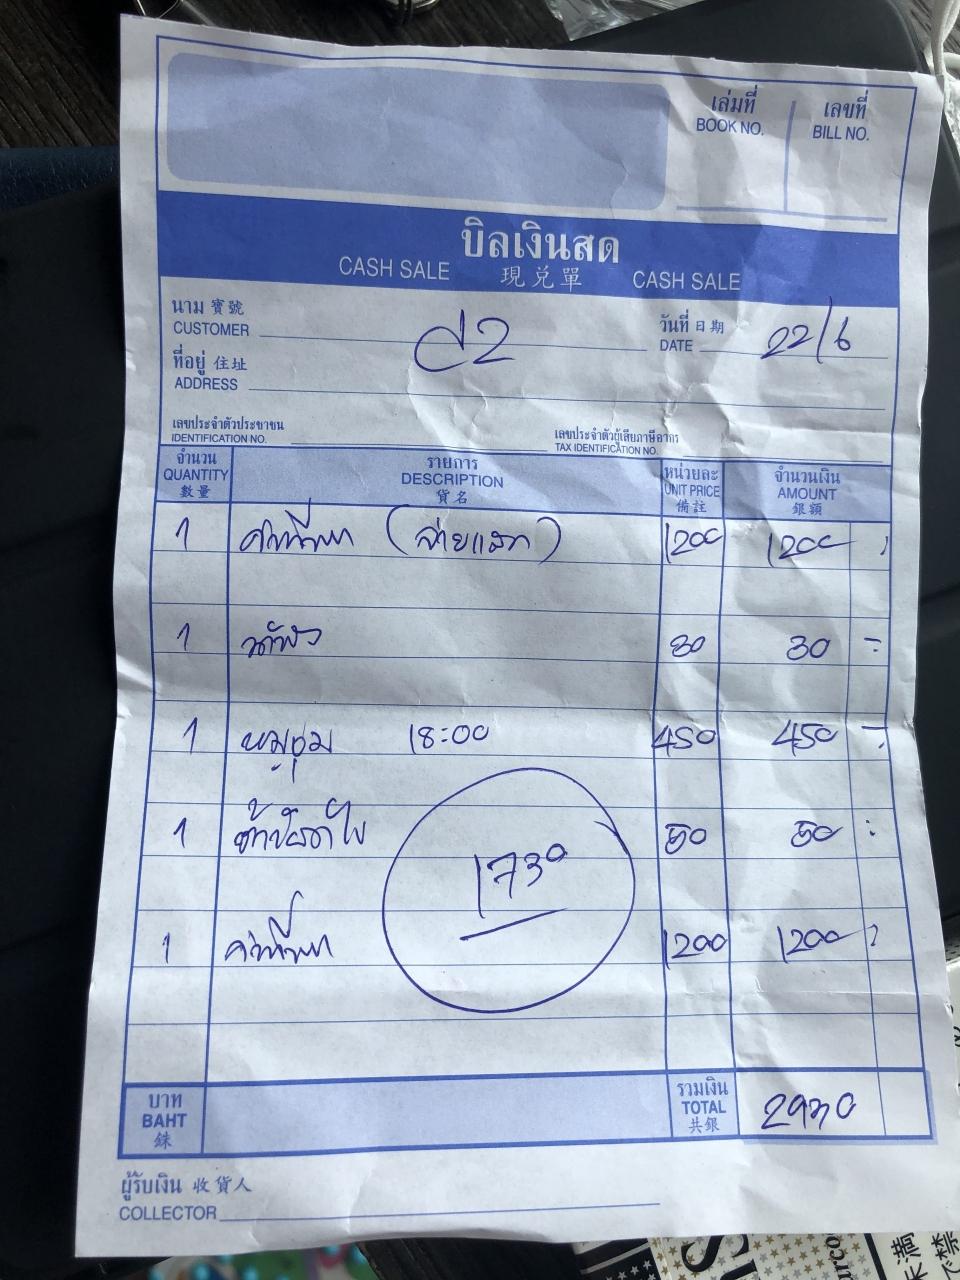 เล่มที่ เลขที่
BOOK NO. BILL NO.
บิลเงินสด
CASH SALE 現兌單 CASH SALE
นาม 寶號 วันที่ 日期
CUSTOMER DATE 22/6
ที่อยู่ 住址
ADDRESS
เลขประจำตัวประชาชน เลขประจำตัวผู้เสียภาษีอากร
IDENTIFICATION NO. TAX IDENTIFICATION NO.
จำนวน รายการ หน่วยละ จำนวนเงิน
QUANTITY DESCRIPTION UNIT PRICE AMOUNT
數量 貨名 備註 銀額
1 ค่าที่พัก (จ่ายแล้ว) 1200 1200
1 30 30
1 หมูชุม 18:00 450 450
1 50 50
1730
1 ค่าที่พัก 1200 1200
บาท รวมเงิน
BAHT TOTAL 2930
銖 共銀
ผู้รับเงิน 收貨人
COLLECTOR